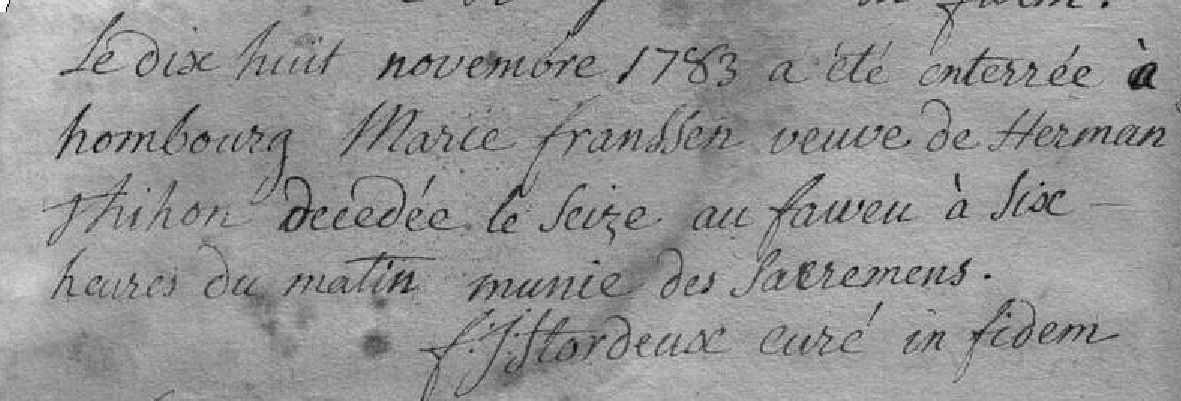 in fidem.
Le dix huit novembre 1783 a été enterrée à
hombourg Marie franssen veuve de Herman
Thihon decedée le seize au faweu à six
heures du matin munie des sacremens.
f: J: Stordeux curé in fidem